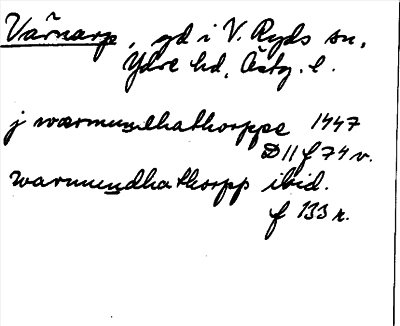 Värnarp, gd i V. Ryds sn,
Ydre hd, Östg. l.
j wærmundhathorppe 1447
D 11 f 74 v.
warmundhathorpp ibid.
f 133 r.